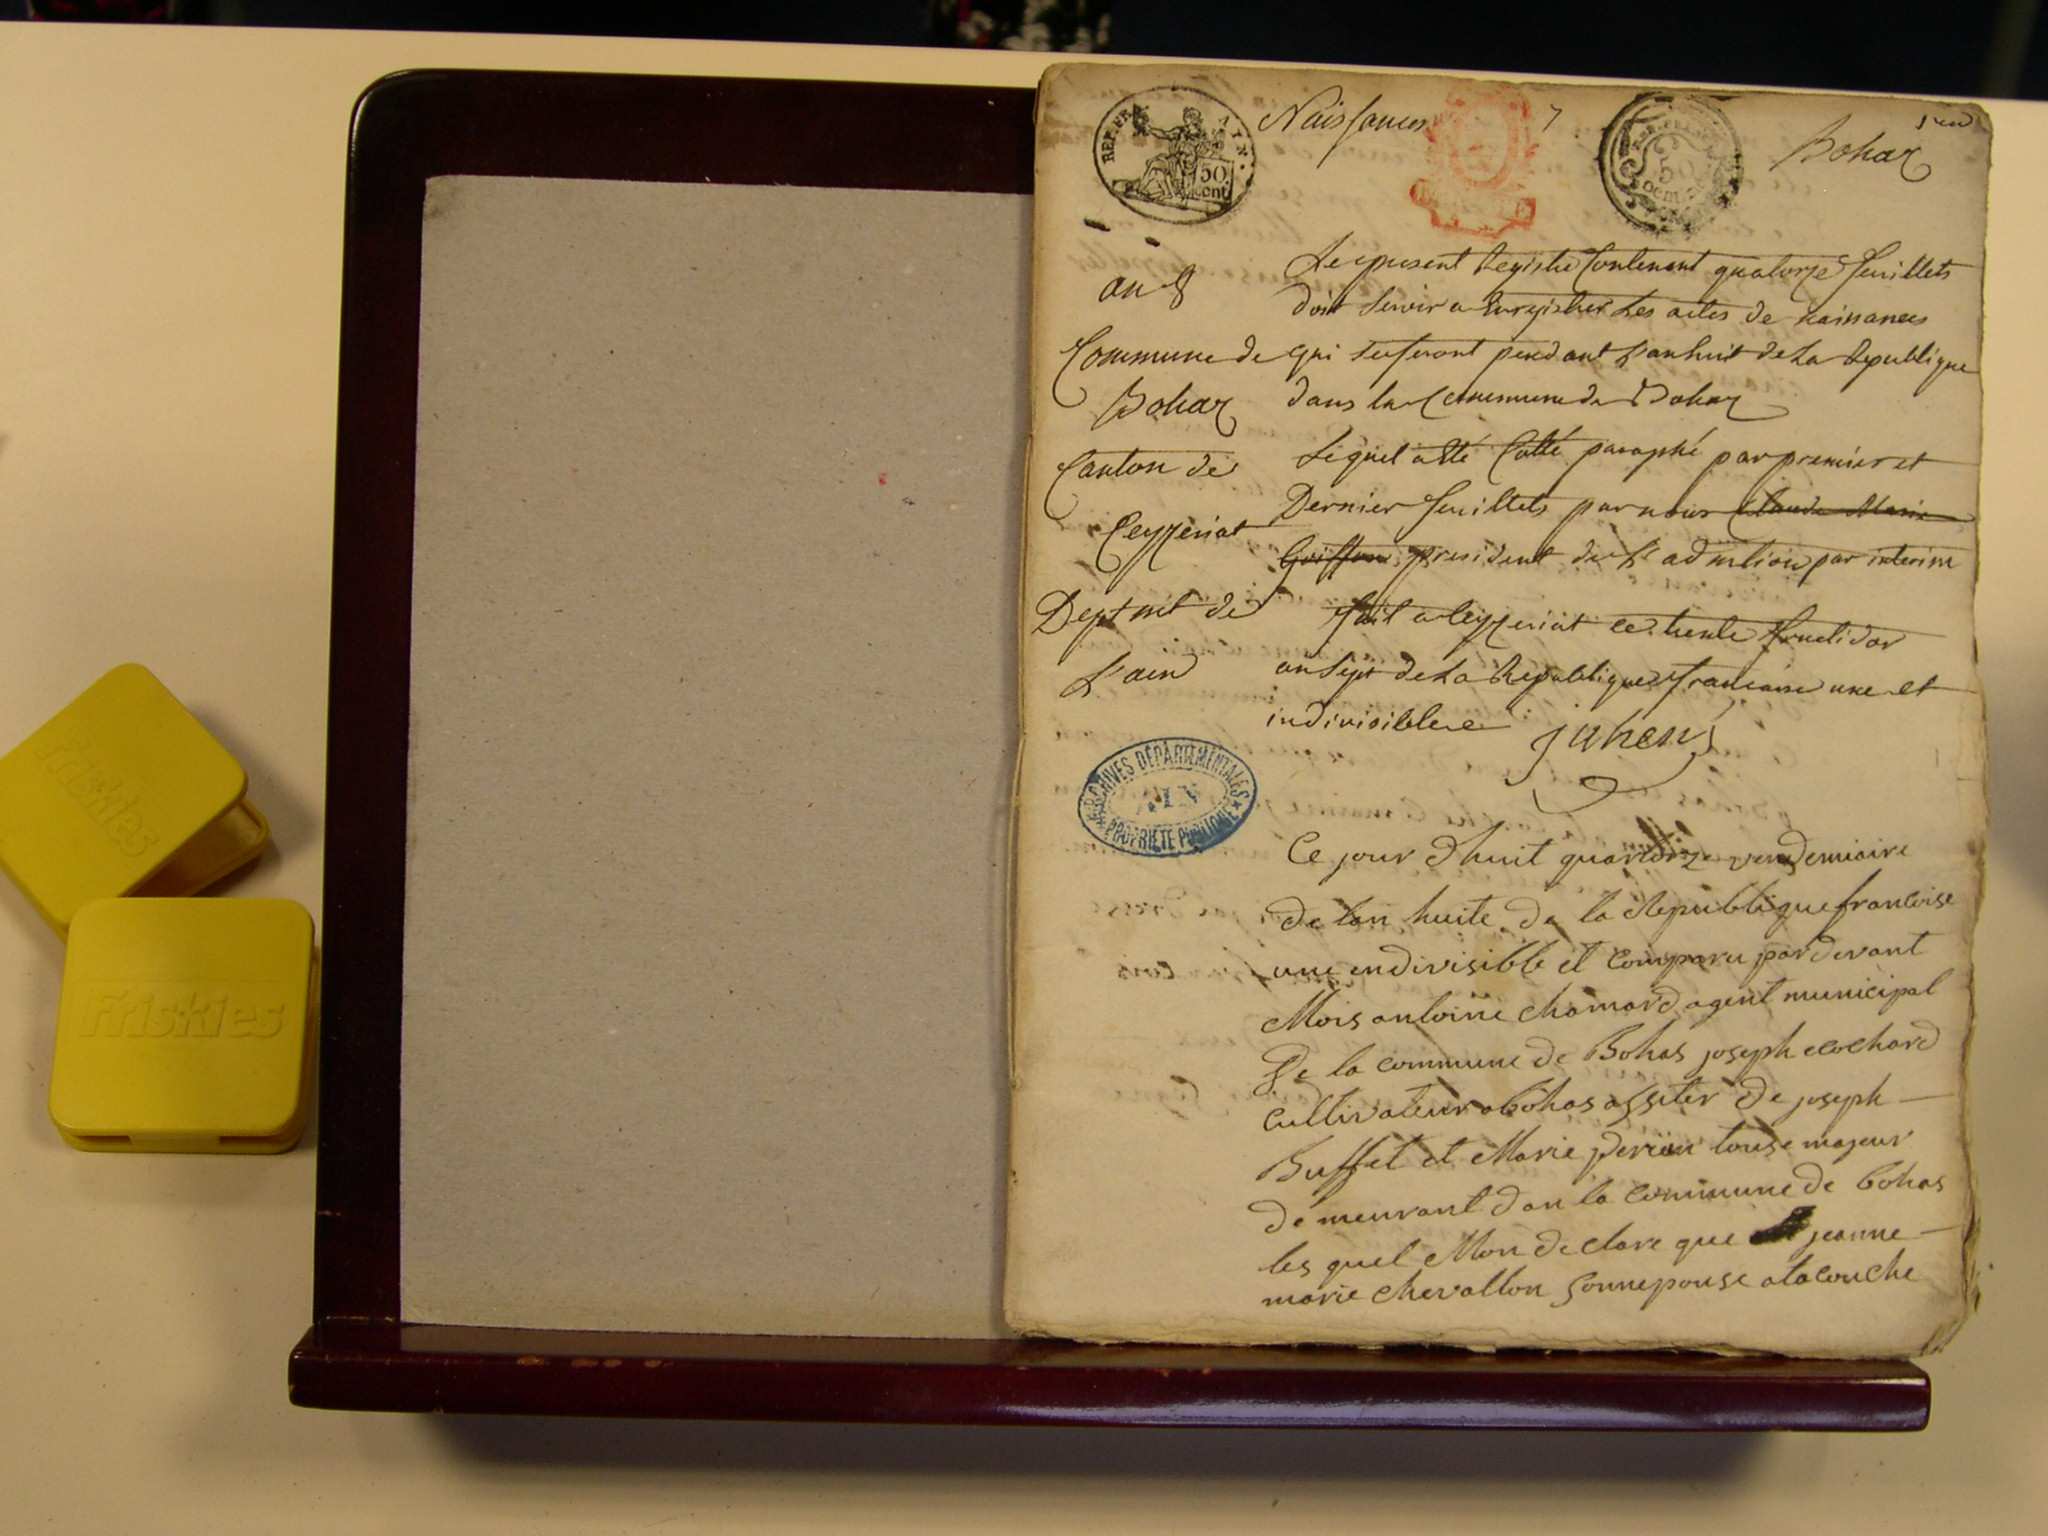 Naissances
7
Bohaz
REP. FRA
50 cent
an 8
Commune de
Bohaz
Canton de
Ceyzeriat
Deptmt de
L'ain
Le present Registre Contenant quatorze feuillets
doit servir a Enregistrer Les actes de naissances
qui se feront pendant L'an huit de La Republique
dans la Commune de Bohaz
Lequel a Eté Cotté paraphé par premier et
Dernier feuillets par nous Claude Marie
Griffon president de L'admtion par interim
fait a Ceyzeriat ce trente fructidor
an Sept de La Republique francaise une et
indivisible
juhens
ARCHIVES DÉPARTEMENTALES
AIN
PROPRIÉTÉ PUBLIQUE
Ce jour dhuit quartorze vendemiaire
de lan huite de la Republique francoise
une endivisible et comparu pardevant
Mois antoine chamard agent municipal
de la commune de Bohas joseph cochard
cultivateur a bohas assiter de joseph
Buffet et Marie perrin touse majeur
demeurant dan la commune de bohas
les quel Mon declare que jeanne
marie chevallon sonnepouse a lacouche
Friskies
Friskies